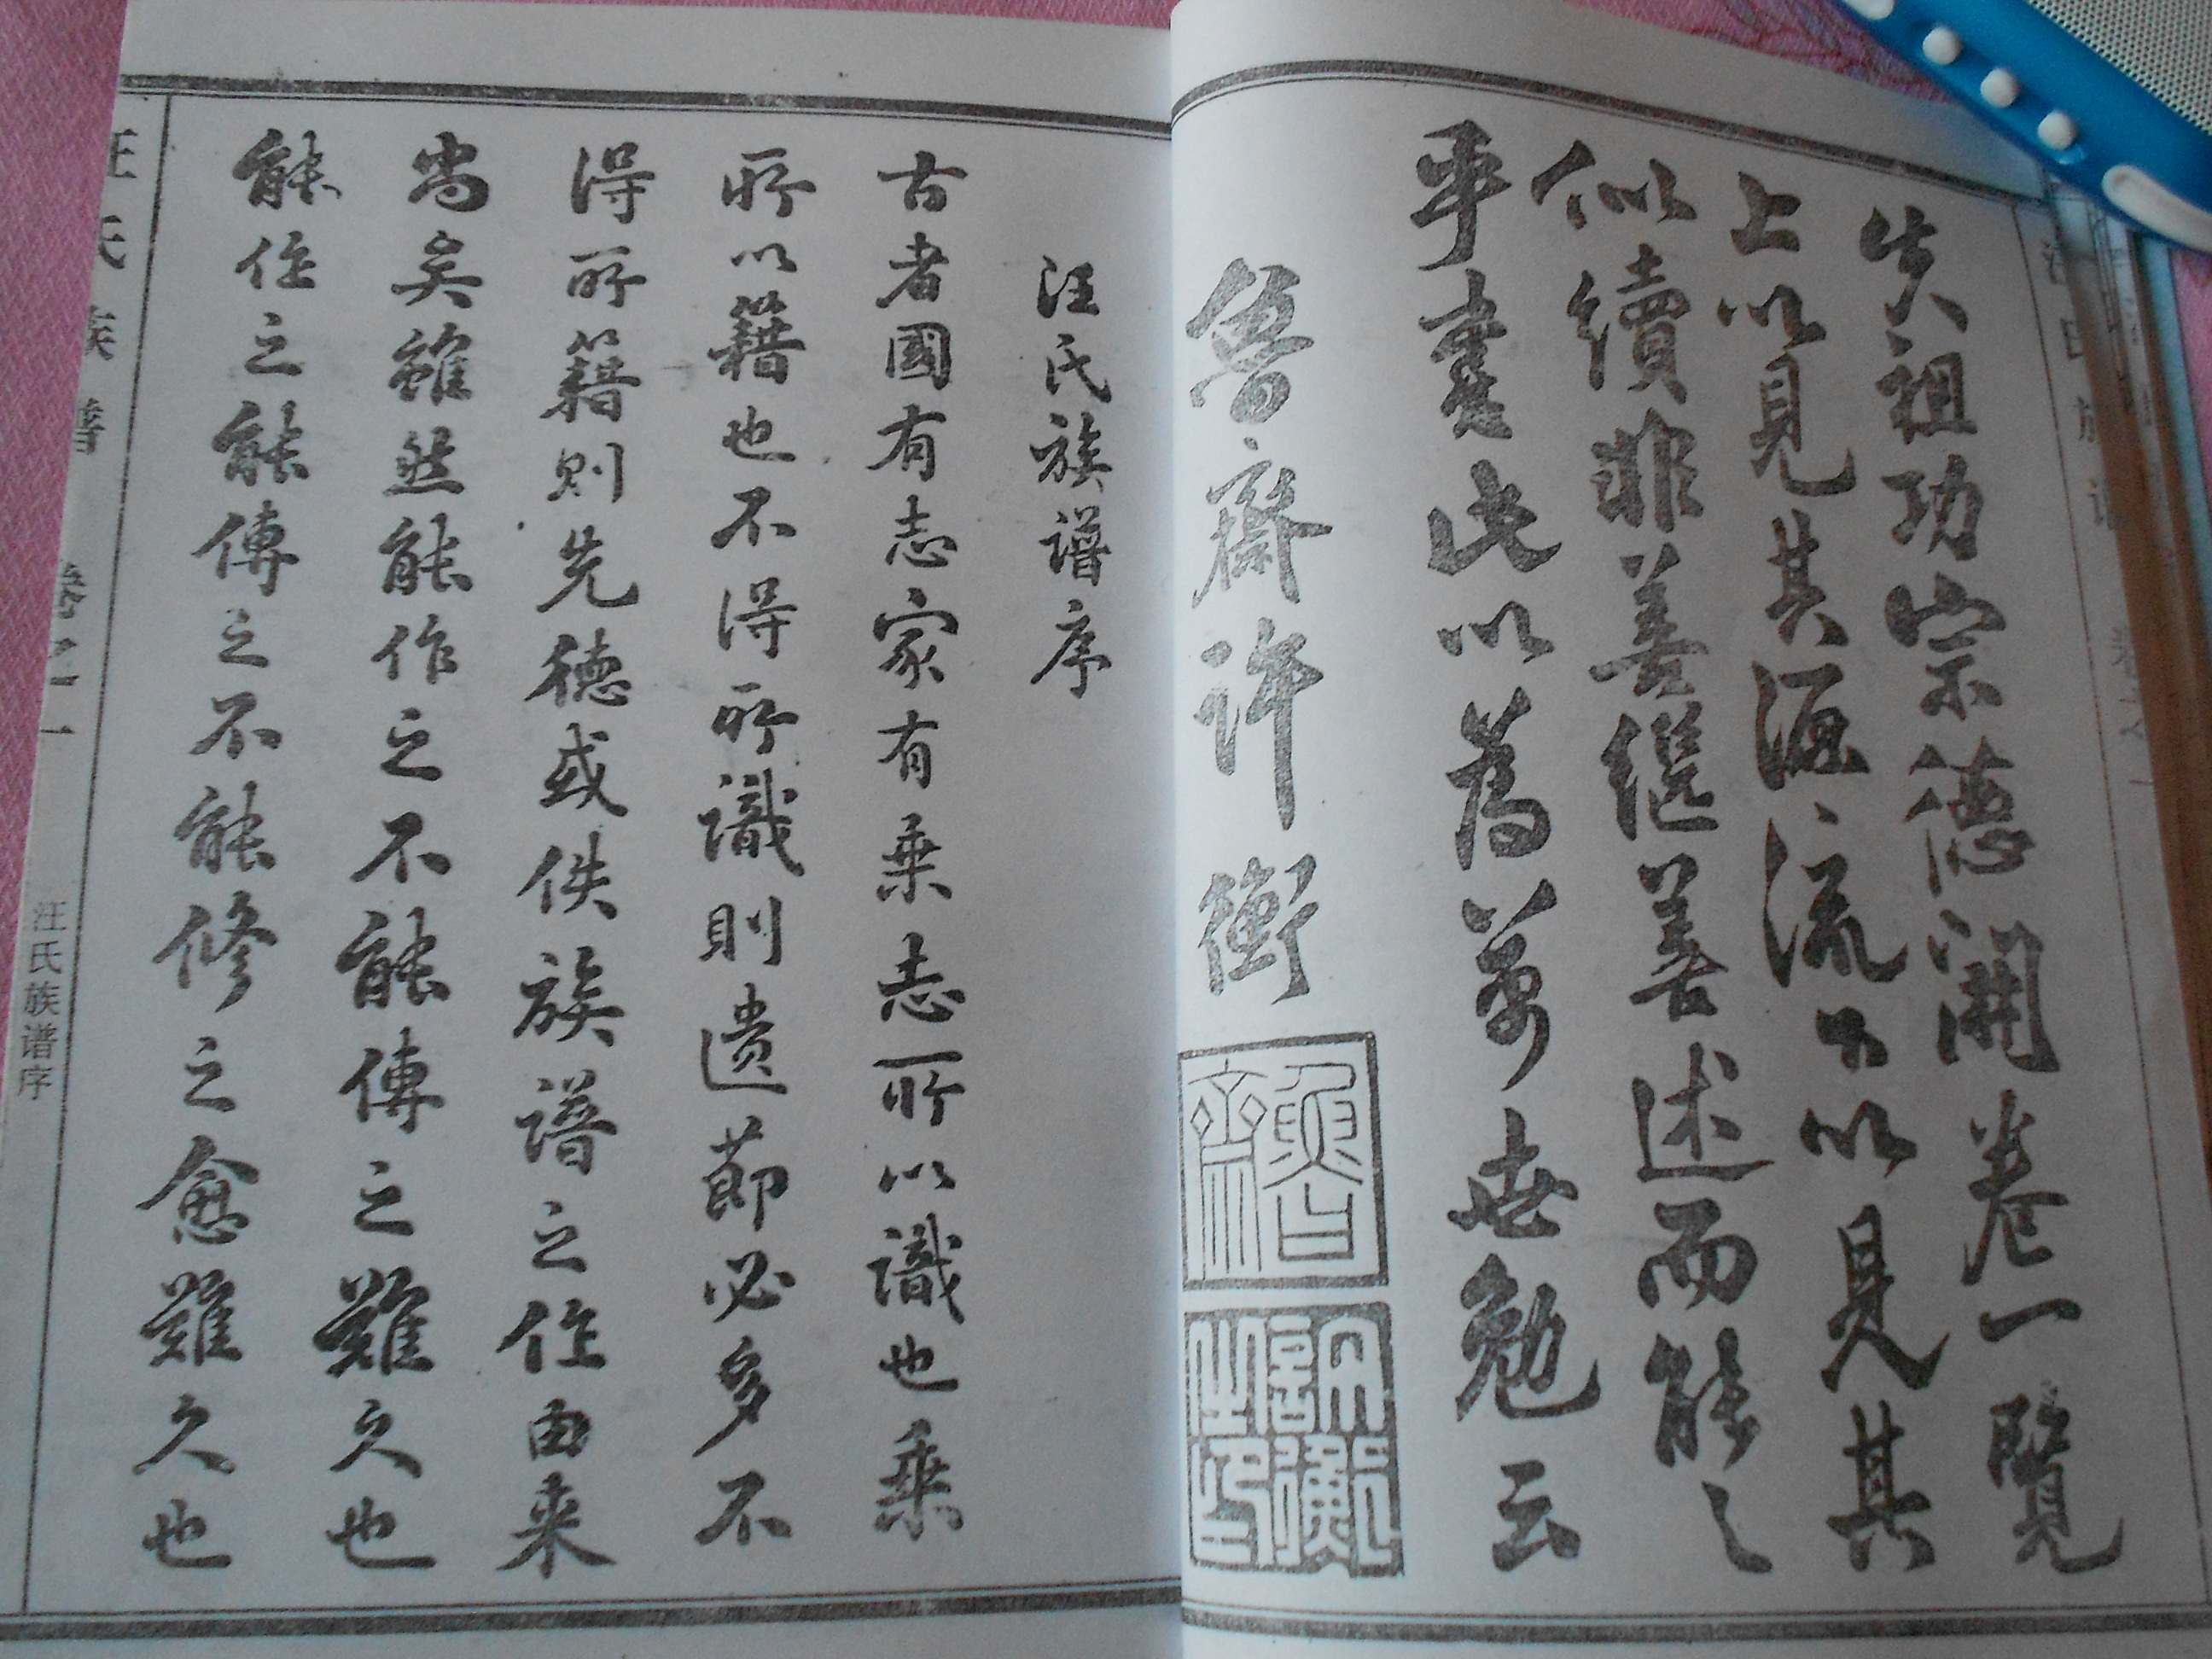 失祖功宗德開卷一覽
上以見其源流下以見其
似續非善繼善述而能之
乎書此以為萬世勉云
魯齋許衡
魯齋
汪氏族譜序
古者國有志家有乗志所以識也乗
所以籍也不得所識則遺莭必多不
得所籍则先德或佚族譜之作由来
尚矣雖然能作之不能傳之難久也
能作之能傳之不能修之愈難久也
汪氏族譜 卷之一
汪氏族谱序